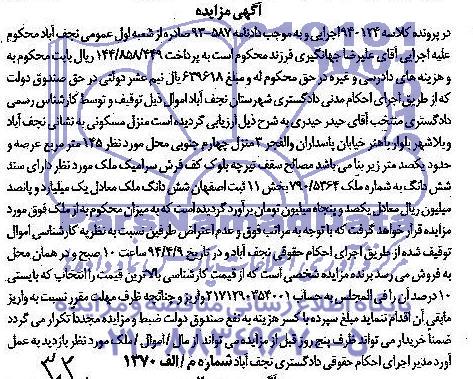 آگهی مزایده
در پرونده کلاسه ۱۲۴-۹۴ اجرایی و به موجب دادنامه ۵۸۷-۹۳ صادره از شعبه اول عمومی نجف آباد محکوم
علیه اجرایی آقای علیرضا جهانگیری فرزند محکوم است به پرداخت ۱۴۴/۸۵۸/۴۴۹ ریال بابت محکوم به
و هزینه های دادرسی و غیره در حق محکوم له و مبلغ ۶۳۹۶۱۸ ریال نیم عشر دولتی در حق صندوق دولت
که از طریق اجرای احکام مدنی دادگستری شهرستان نجف آباد اموال ذیل توقیف و توسط کارشناس رسمی
دادگستری منتخب آقای حیدر حیدری به شرح ذیل ارزیابی گردیده است منزل مسکونی به نشانی نجف آباد
ویلاشهر بلوار باهنر خیابان پاسداران والفجر ۳ منزل چهارم جنوبی محل مورد نظر ۱۴۵ متر مربع عرصه و
حدود یکصد متر زیر بنا می باشد مصالح سقف تیرچه بلوک کف فرش سرامیک ملک مورد نظر دارای سند
شش دانگ به شماره ملک ۷۹۰/۵۳۶۴ بخش ۱۱ ثبت اصفهان شش دانگ ملک معادل یک میلیارد و پانصد
میلیون ریال معادل یکصد و پنجاه میلیون تومان برآورد گردیده است که به میزان محکوم به از ملک فوق مورد
مزایده قرار خواهد گرفت که با توجه به مراتب فوق و عدم اعتراض طرفین نسبت به نظریه کارشناسی اموال
توقیف شده از طریق اجرای احکام حقوقی نجف آباد و در تاریخ ۹۴/۴/۹ ساعت ۱۰ صبح و در همان محل
به فروش می رسد برنده مزایده شخصی است که از قیمت کارشناسی بالاترین قیمت را انتخاب که بایستی
۱۰ درصد آن را فی المجلس به حساب ۲۱۷۱۲۹۰۳۵۴۰۰۱ واریز و چنانچه ظرف مهلت مقرر نسبت به واریز
مابقی آن اقدام ننماید مبلغ سپرده با کسر هزینه به نفع صندوق دولت ضبط و مزایده مجدداً تکرار می گردد
ضمناً خریدار می تواند ظرف پنج روز قبل از مزایده از مال / اموال / ملک مورد نظر بازدید به عمل
آورد مدیر اجرای احکام حقوقی دادگستری نجف آباد شماره م / الف ۱۳۷۰